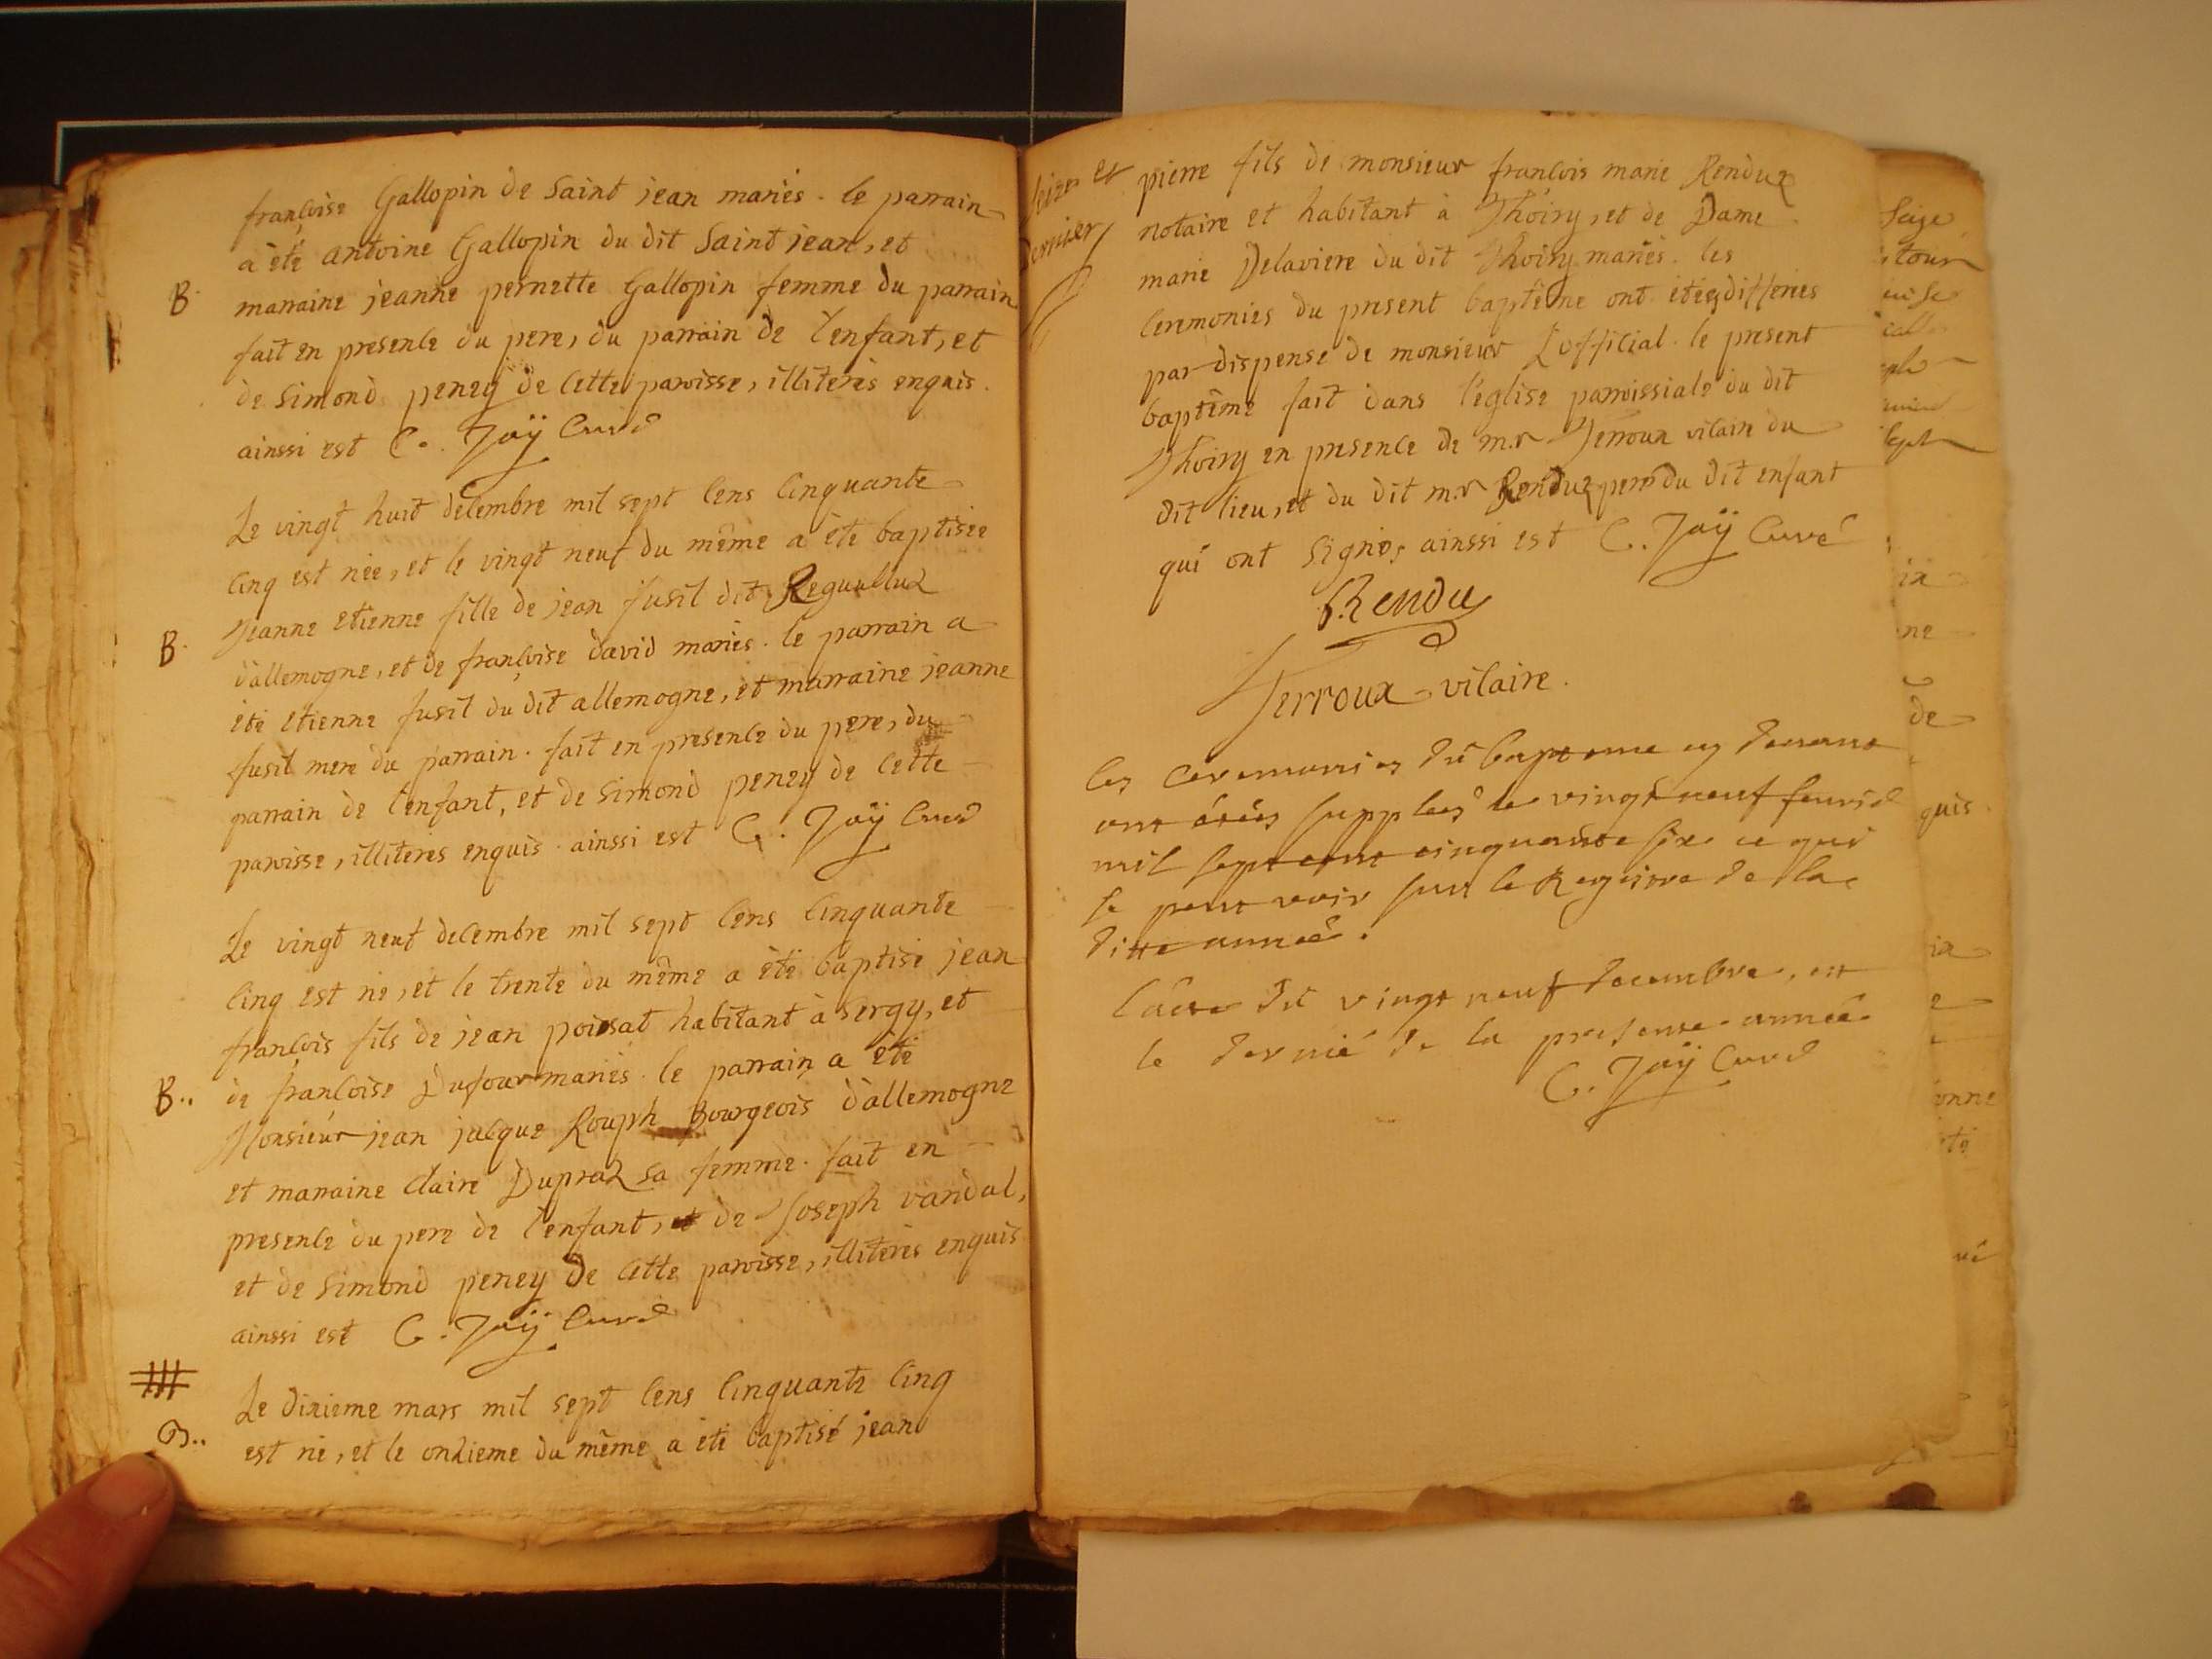 françoise Gallopin de Saint jean mariés. le parrain
a été antoine Gallopin du dit Saint jean, et
B. marraine jeanne pernette Gallopin femme du parrain
fait en presence du pere, du parrain de l'enfant, et
de Simond peney de cette paroisse, illiterés enquis.
ainssi est C. Jaÿ Curé
Le vingt huit decembre mil sept cens cinquante
cinq est née, et le vingt neuf du même a été baptisée
jeanne etienne fille de jean fusil dit
B. d'allemogne, et de françoise david mariés. le parrain a
été etienne fusil du dit allemogne, et marraine jeanne
fusil mere du parrain. fait en presence du pere, du
parrain de l'enfant, et de Simond peney de cette
paroisse, illiterés enquis. ainssi est C. Jaÿ Curé
Le vingt neuf decembre mil sept cens cinquante
cinq est né, et le trente du même a été baptisé jean
françois fils de jean poissat habitant à Sergy, et
B.. de françoise Dufour mariés. le parrain a été
Monsieur jean jacque Rouph Bourgeois d'allemogne
et marraine Claire Dupraz sa femme. fait en
presence du pere de l'enfant, et de Joseph vandal,
et de Simond peney de cette paroisse, illiterés enquis
ainssi est C. Jaÿ Curé
Le dixieme mars mil sept cens cinquante cinq
B.. est né, et le onzieme du même a été baptisé jean
seize et
dernier
pierre fils de monsieur françois marie Rendu
notaire et habitant à Thoiry, et de Dame
marie Delaviere du dit Thoiry mariés. les
ceremonies du present baptême ont étés differies
par dispense de monsieur L'official. le present
baptême fait dans l'église parroissiale du dit
Thoiry en presence de m.r Terroux vicaire du
dit lieu, et du dit m.r Rendu pere du dit enfant
qui ont Signés ainssi est C. Jaÿ Curé
Rendu
Terroux vicaire.
les ceremonies du bapteme cy devant
ont étées supplées le vingt neuf
mil sept cent cinquante six ce qui
se peut voir sur le Registre de la
ditte année.
l'acte du vingt neuf decembre, est
le dernié de la presente année
C. Jaÿ Curé
Seize
tour
ne
de
quis
onne
été